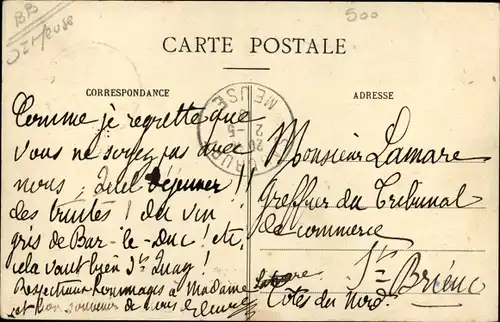 BB
500
Meuse
CARTE POSTALE
CORRESPONDANCE
ADRESSE
MEUSE
2-5
20
Comme je regrette que
vous ne soyez pas avec
nous, quel déjeuner!!
des truites! du vin
gris de Bar-le-Duc! etc,
cela vaut bien St Quay!
Respectueux hommages à Madame
et bon souvenir de nous
Monsieur Lamare
Greffier du Tribunal
de commerce
St Brieuc
Côtes du Nord